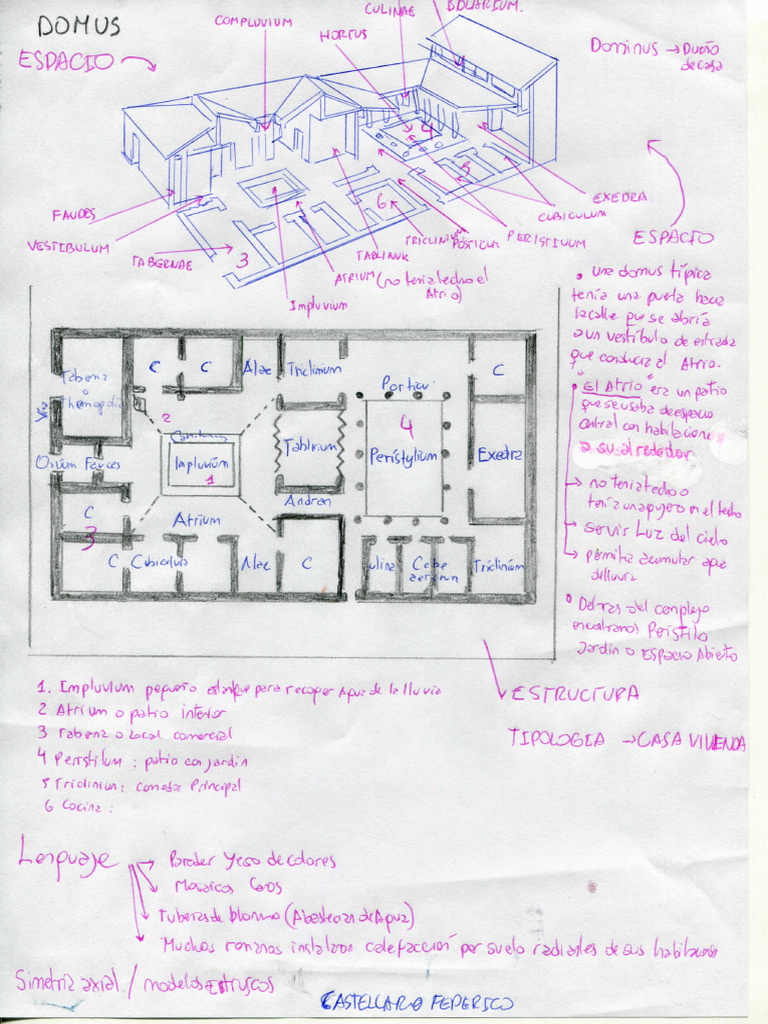 DOMUS
ESPACIO
COMPLUVIUM
HORTUS
CULINAE
SOLARIUM.
Dominus → Dueño
de casa
FAUDES
VESTIBULUM
TABERNAE
3
Impluvium
ATRIUM (no tenia techo el
Atrio)
TABLINUK
TRICLINIUM
PÓSTICUM
PERISTILIUM
CUBICULUM
EXEDRA
4
5
6
ESPACIO
• una domus típica
tenía una pueta hacia
la calle que se abría
a un vestíbulo de entrada
que conducia al Atrio.
• El Atrio era un patio
que se usaba de espacio
central con habitaciones
a su alrededor
→ no tenia techo o
tenía un agujero en el techo
→ Servir Luz del cielo
→ permitia acumular agua
de lluvia
• Detras del complejo
encontramos Peristilo
Jardin o ESPACIO Abierto
Tabena
o
Thermopolio
C
C
Alae
Triclinium
C
2
Impluvium
1
Tablinum
Porticu
4
Perístylium
Exedra
Ostium Fauces
C
3
Atrium
Andron
C
Cubicula
Alae
C
ulina
Triclinium
1. Impluvium pequeño estanque para recoger agua de la lluvia
2 Atrium o patio interior
3 Tabena o Local comercial
4 Peristilum : patio con jardin
5 Triclinium: comedor Principal
6 Cocina :
ESTRUCTURA
TIPOLOGIA → CASA VIVIENDA
Lenguaje → Pareder Yeso de colores
Mosaicos
Tuberias de plomo (Abastecian de Agua)
Muchos romanos instalaron calefacción por suelo radiantes de sus habitaciones
Simetria axial / modelos Etruscos
CASTELLARO FEDERICO